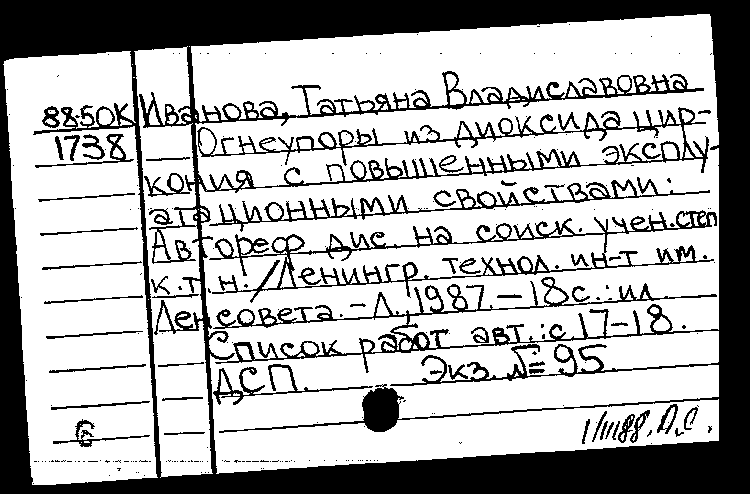 88-50К Иванова, Татьяна Владиславовна
1738 Огнеупоры из диоксида цир-
кония с повышенными эксплу-
атационными свойствами:
Автореф. дис. на соиск. учен. степ
к.т.н. / Ленингр. технол. ин-т им.
Ленсовета. - Л., 1987. - 18 с. : ил.
Список работ авт.: с. 17-18.
ДСП. Экз. № 95.
б 1/III 88. Л.С.